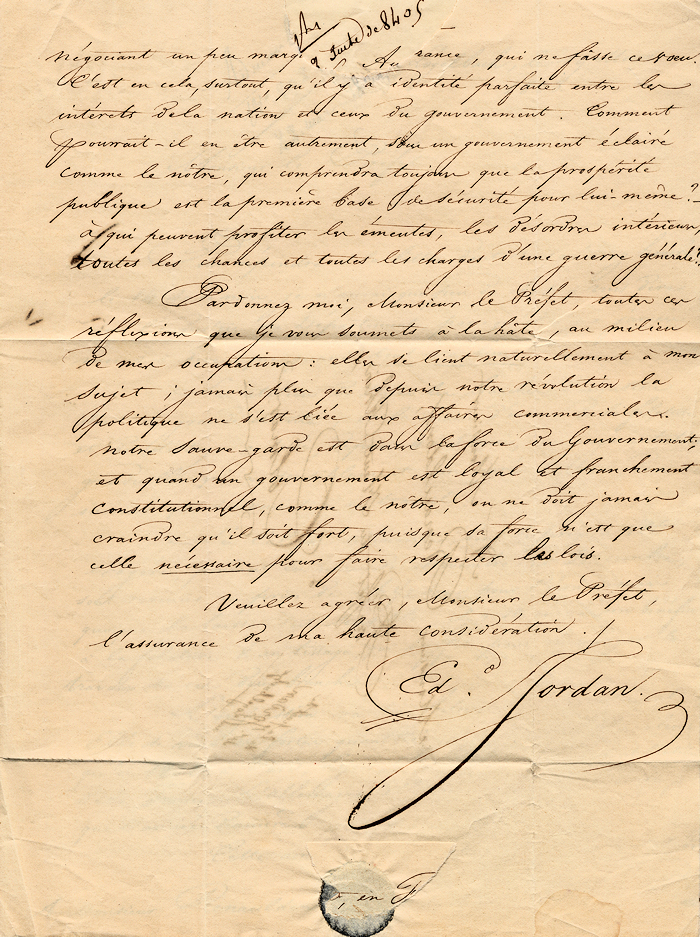 Suite de 8405
négociant un peu marq rance, qui ne fasse ce voeu.
C'est en cela, surtout, qu'il y a identité parfaite entre les
intérêts de la nation et ceux du gouvernement. Comment
pourrait-il en être autrement, sous un gouvernement éclairé
comme le nôtre, qui comprendra toujours que la prospérité
publique est la première base de sécurité pour lui-même? _
à qui peuvent profiter les émeutes, les désordres intérieurs,
toutes les chances et toutes les charges d'une guerre générale?
Pardonnez moi, Monsieur le Préfet, toutes ces
réflexions que je vous soumets à la hâte, au milieu
de mes occupations : elles se lient naturellement à mon
sujet ; jamais plus que depuis notre révolution la
politique ne s'est liée aux affaires commerciales.
notre sauve-garde est dans la force du Gouvernement,
et quand un gouvernement est loyal et franchement
constitutionnel, comme le nôtre, on ne doit jamais
craindre qu'il soit fort, puisque sa force n'est que
celle nécessaire pour faire respecter les lois.
Veuillez agréer, Monsieur le Préfet,
l'assurance de ma haute considération.
Ed.d Jordan.
, en F